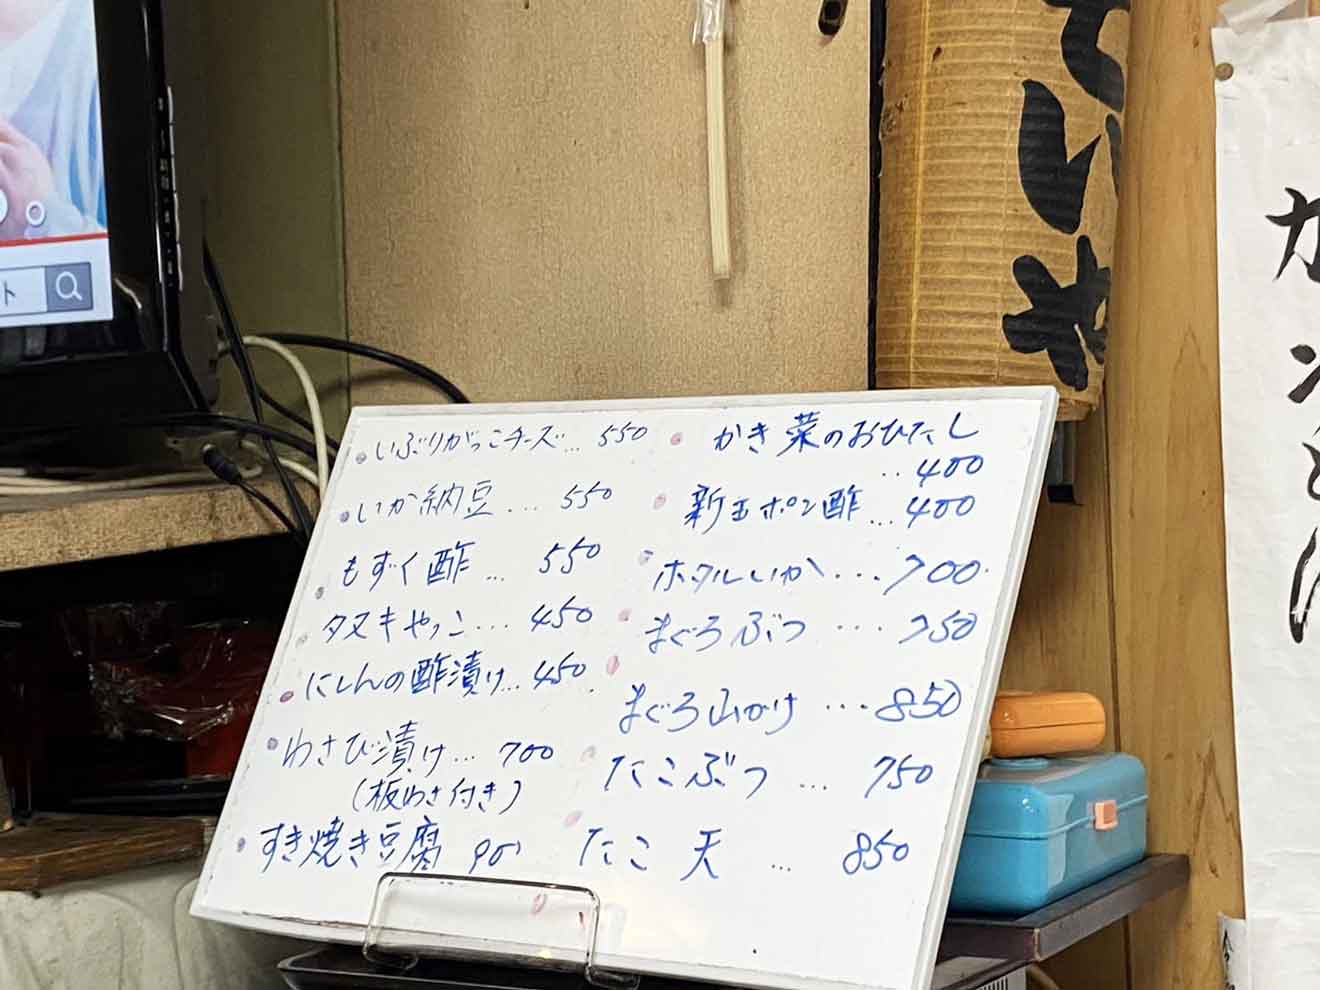 ト
ていや
いぶりがっこチーズ… 550
いか納豆 … 550
もずく酢 … 550
タヌキやっこ … 450
にしんの酢漬け… 450
わさび漬け… 700
(板わさ付き)
すき焼き豆腐
かき菜のおひたし
‥400
新玉ポン酢 … 400
ホタルいか … 700
まぐろぶつ … 750
まぐろ山かけ … 850
たこぶつ … 750
たこ天 … 850